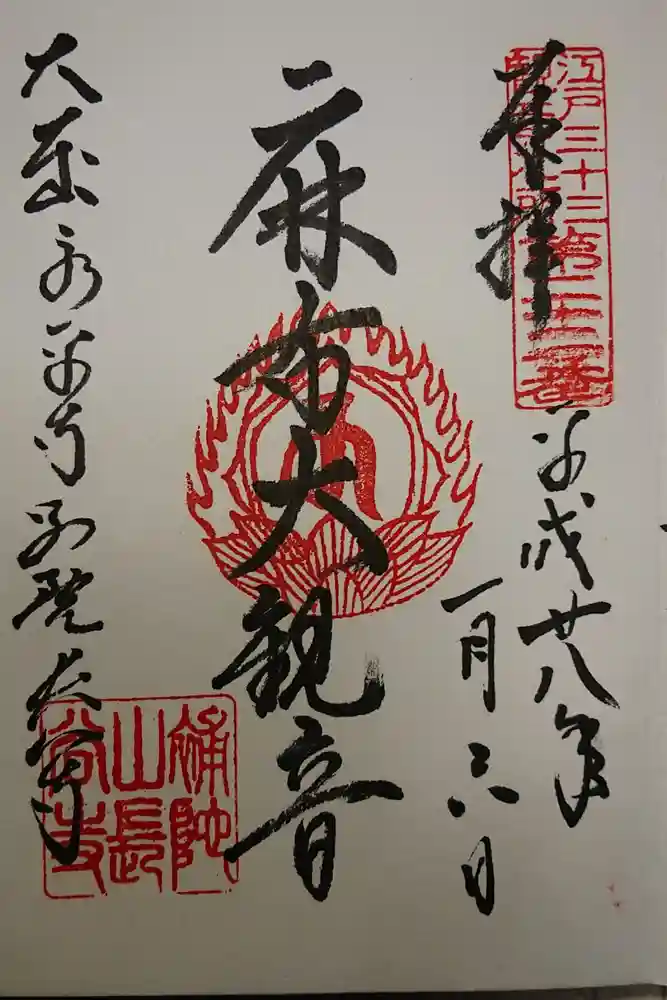 奉拝
江戸三十三
観音札所
第二十二番
平成廿八年
一月六日
麻布大観音
大本山永平寺別院長谷寺
補陀
山長
谷寺